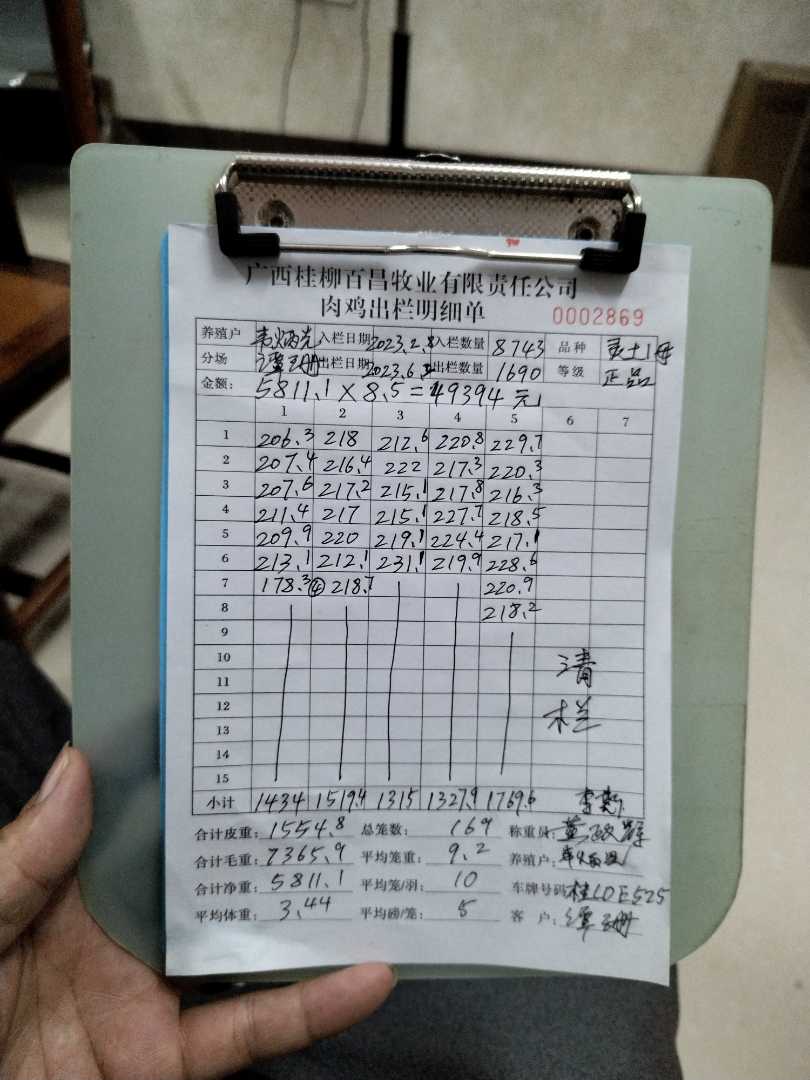 广西桂柳百昌牧业有限责任公司
肉鸡出栏明细单
0002869
养殖户 韦炳光 入栏日期 2023.2.8 入栏数量 8743 品种
分场 谭玉册 出栏日期 2023.6. 出栏数量 1690 等级 正品
金额: 5811.1×8.5=49394元
1 2 3 4 5 6 7
1 206.3 218 212.6 220.8 229.7
2 207.4 216.4 222 217.3 220.3
3 207.6 217.2 215.1 217.8 216.3
4 211.4 217 215.1 227.7 218.5
5 209.9 220 219.1 224.4 217.1
6 213.1 212.1 231.1 219.9 228.6
7 178.3 ④ 218.7 220.9
8 218.2
9
10 清
11
12 栏
13
14
15
小计 1434 1519.4 1315 1327.9 1769.6
合计皮重: 1554.8 总笼数: 169 称重员:
合计毛重: 7365.9 平均笼重: 9.2 养殖户:
合计净重: 5811.1 平均笼/羽: 10 车牌号码: 桂LDE525
平均体重: 3.44 平均磅/笼: 5 客 户: 谭玉册